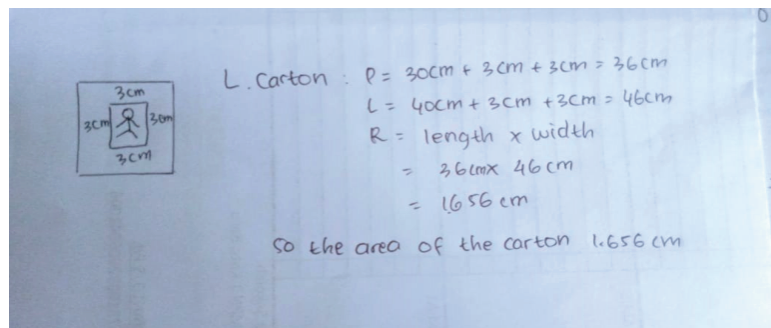 3cm
3cm 3cm
3cm
L. Carton : P = 30cm + 3cm + 3cm = 36cm
L = 40cm + 3cm + 3cm = 46cm
R = length x width
= 36cm x 46cm
= 1.656 cm
So the area of the carton 1.656 cm